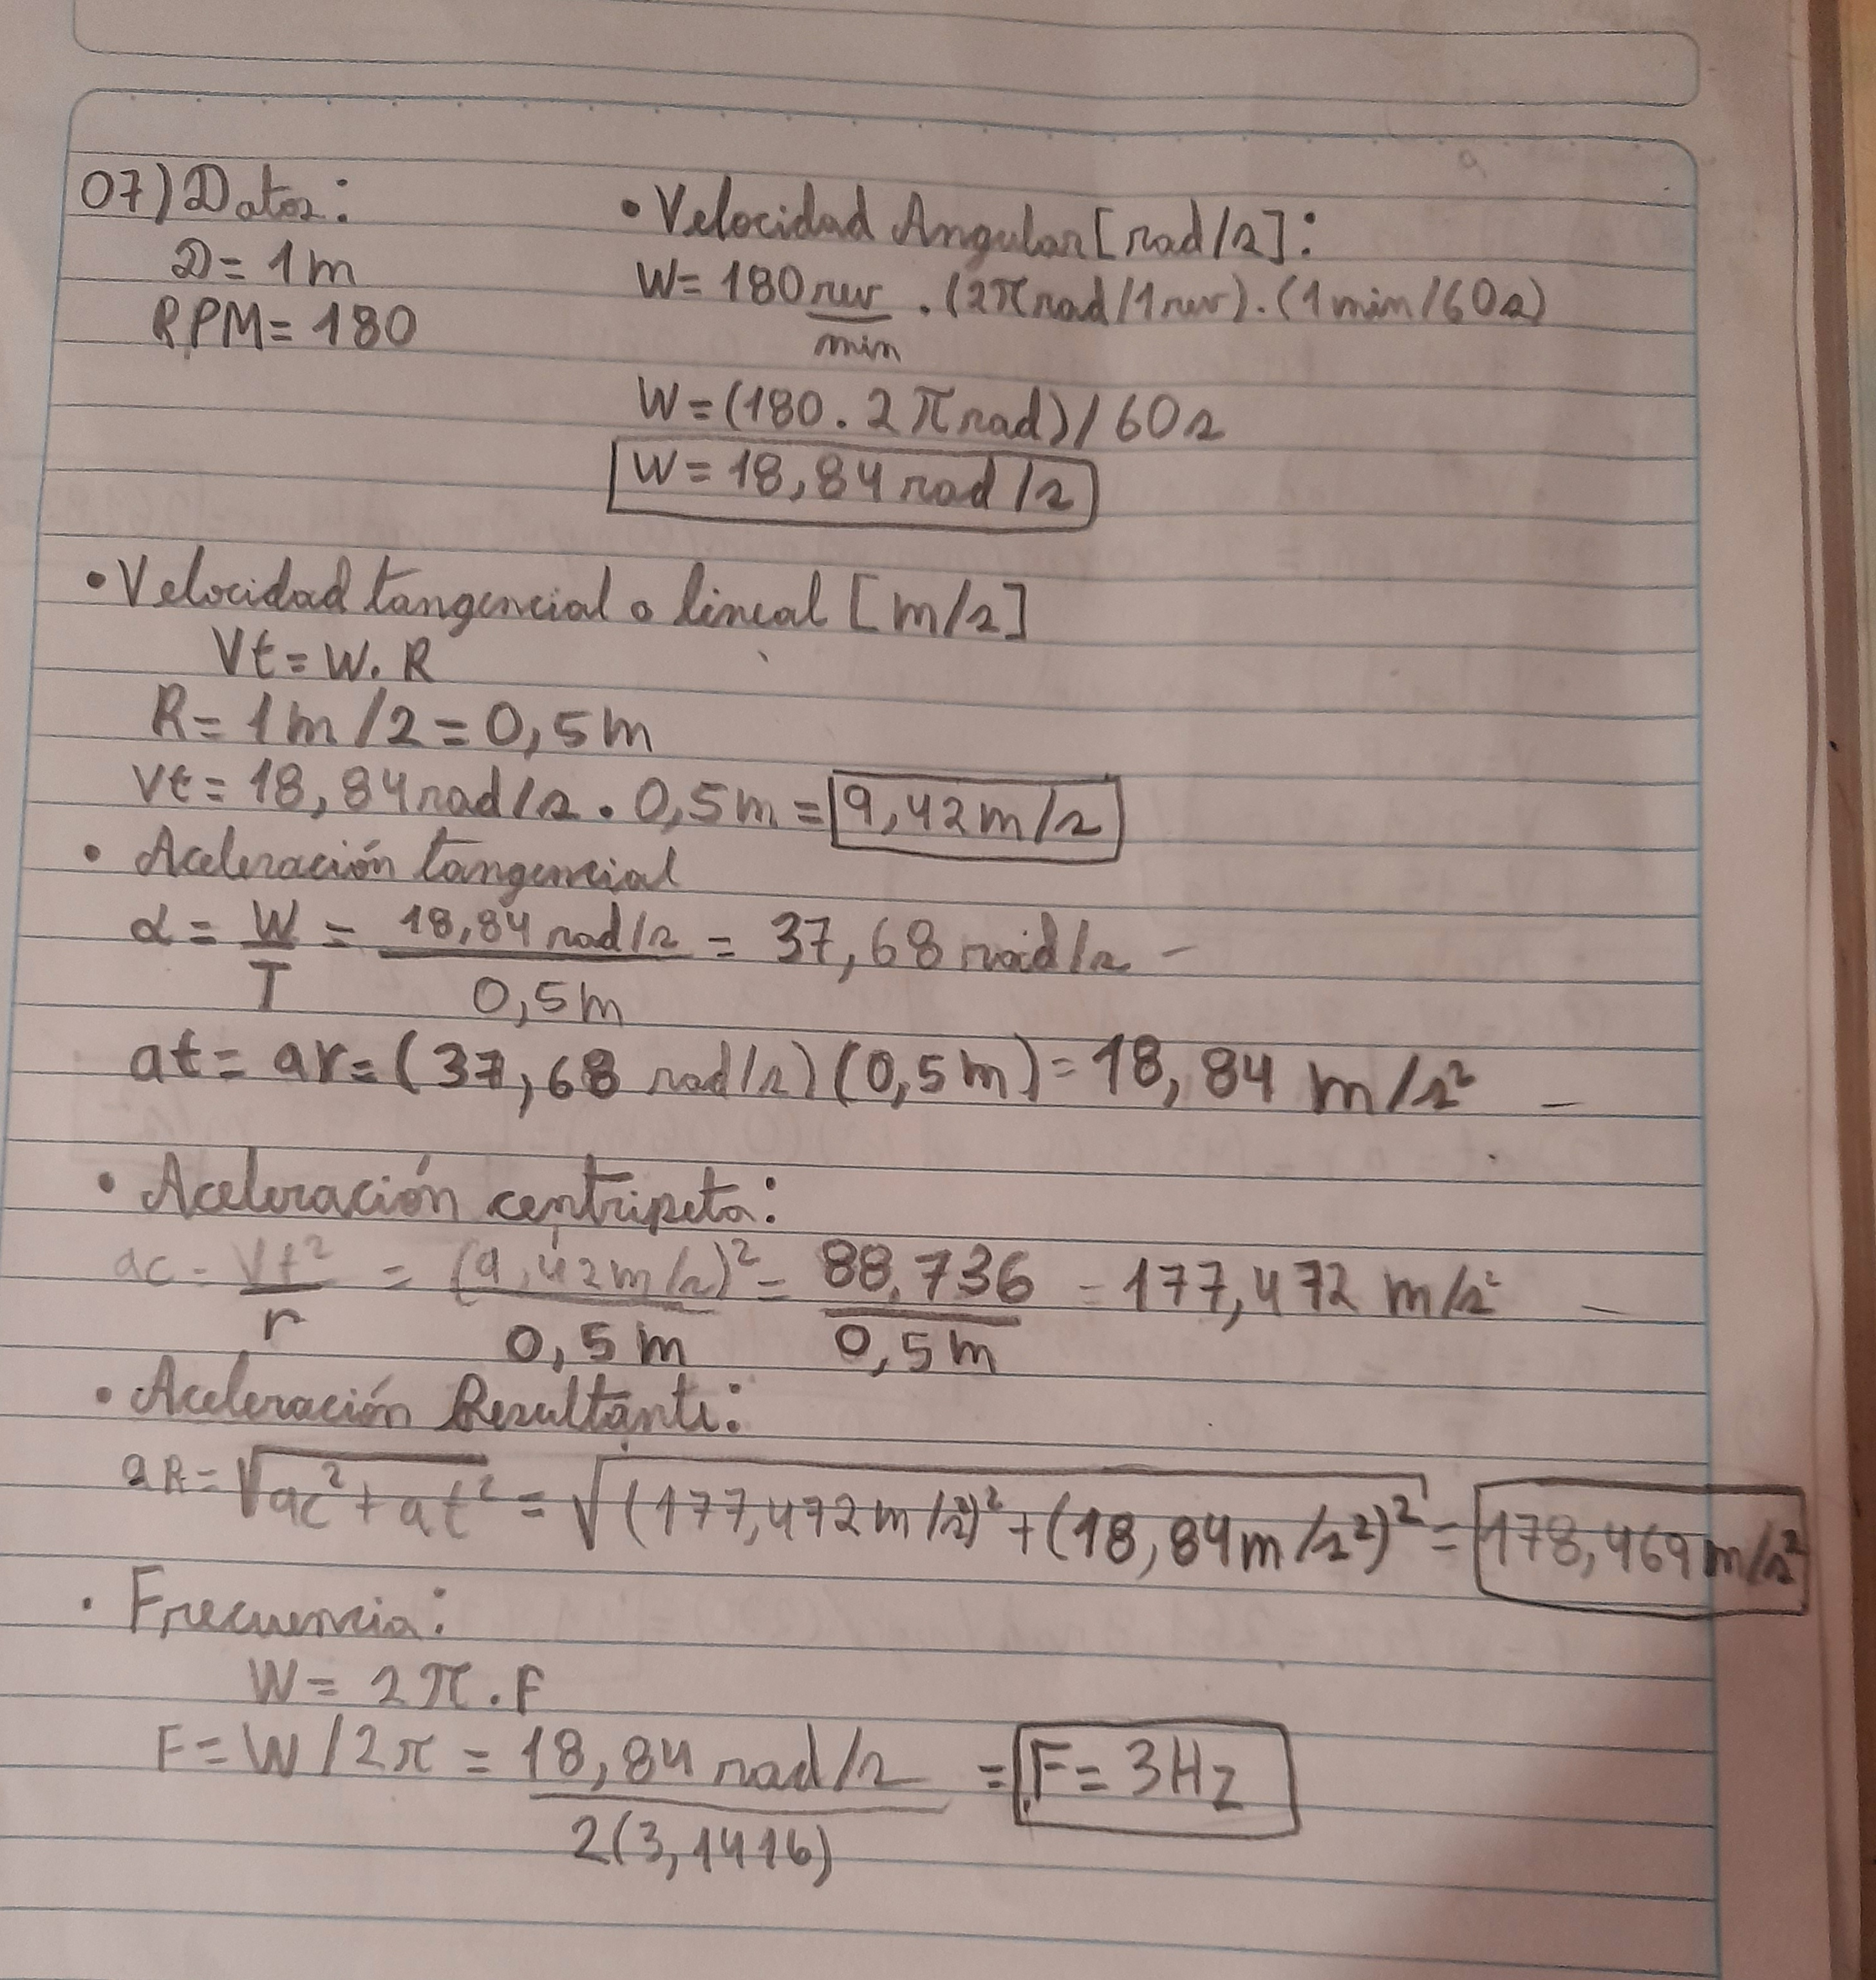 07) Datos:
D = 1m
RPM = 180
• Velocidad Angular [rad/s]:
W = 180 rev/min . (2π rad/1rev) . (1min/60s)
W = (180 . 2π rad) / 60s
W = 18,84 rad/s
• Velocidad tangencial o lineal [m/s]
Vt = W. R
R = 1m/2 = 0,5m
Vt = 18,84 rad/s . 0,5m = 9,42m/s
• Aceleración tangencial
α = W/T = 18,84 rad/s / 0,5m = 37,68 rad/s –
at = ar = (37,68 rad/s) (0,5m) = 18,84 m/s² –
• Aceleración centripeta:
ac = Vt²/r = (9,42m/s)²/0,5m = 88,736/0,5m = 177,472 m/s² –
• Aceleración Resultante:
aR = √ac² + at² = √(177,472m/s²)² + (18,84m/s²)² = 178,469m/s²
• Frecuencia:
W = 2π . F
F = W/2π = 18,84 rad/s / 2(3,1416) = F = 3Hz